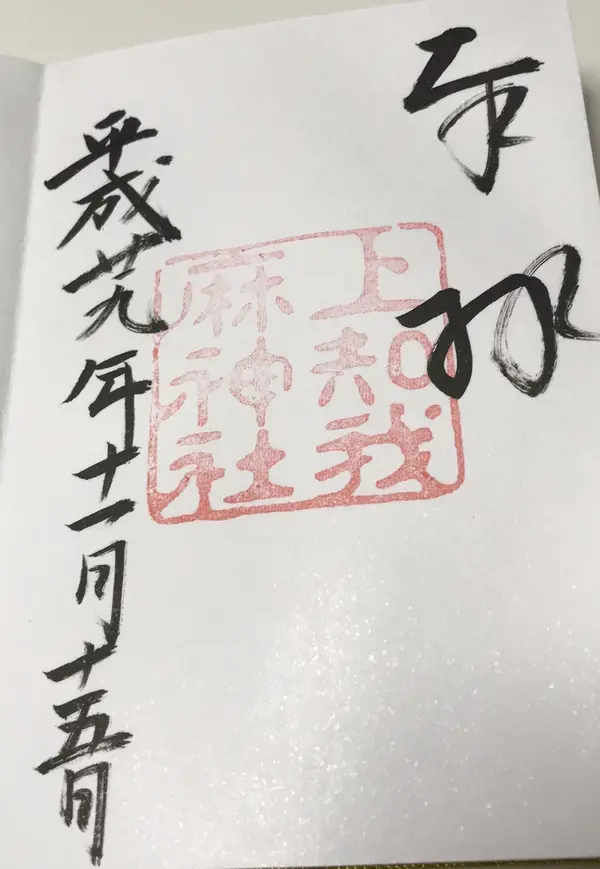 奉拝
上知我
麻神社
平成廿九年十一月十五日